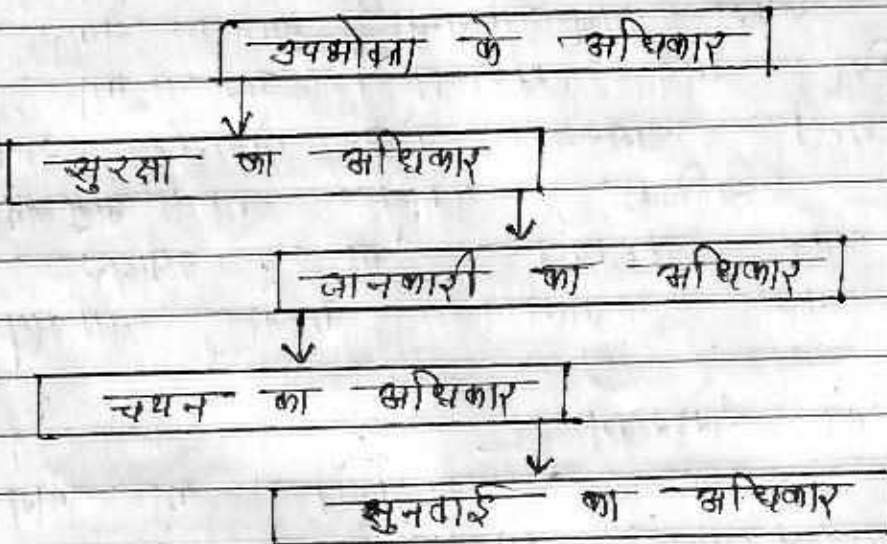 उपभोक्ता के अधिकार
सुरक्षा का अधिकार
जानकारी का अधिकार
चयन का अधिकार
सुनवाई का अधिकार